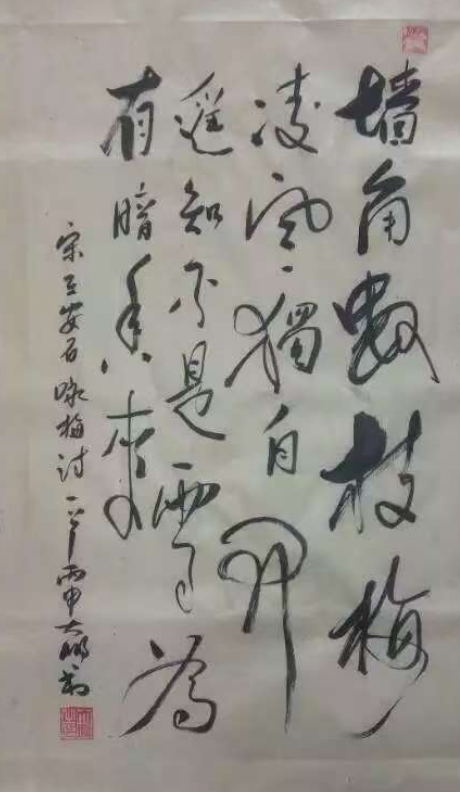 墙角数枝梅
凌寒独自开
遥知不是雪為
有暗香来
宋王安石咏梅诗一首丙申